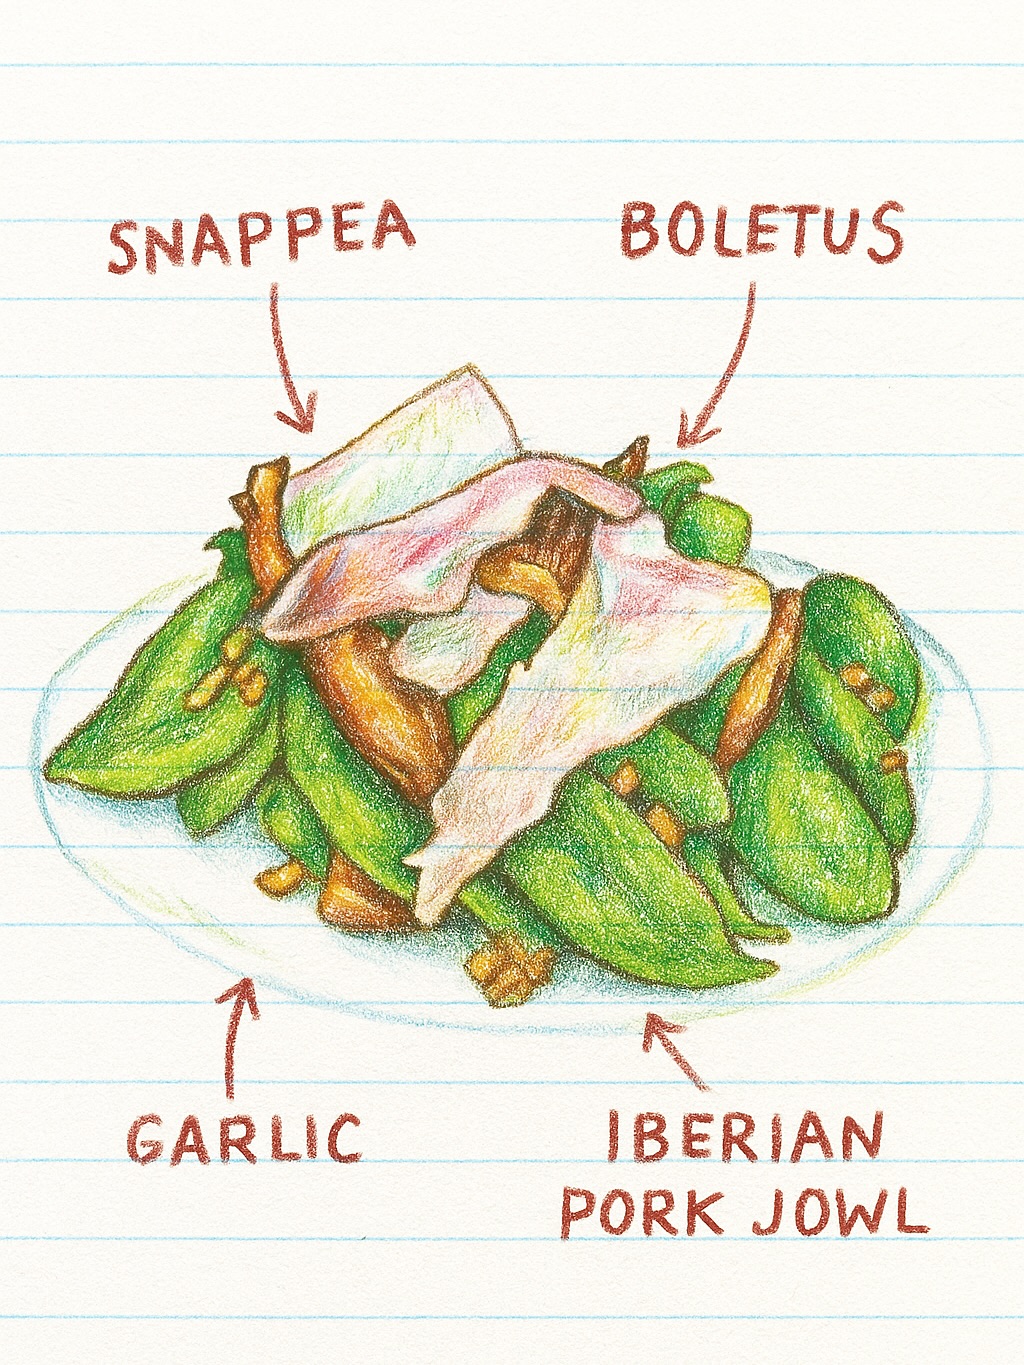 SNAPPEA
BOLETUS
GARLIC
IBERIAN
PORK JOWL